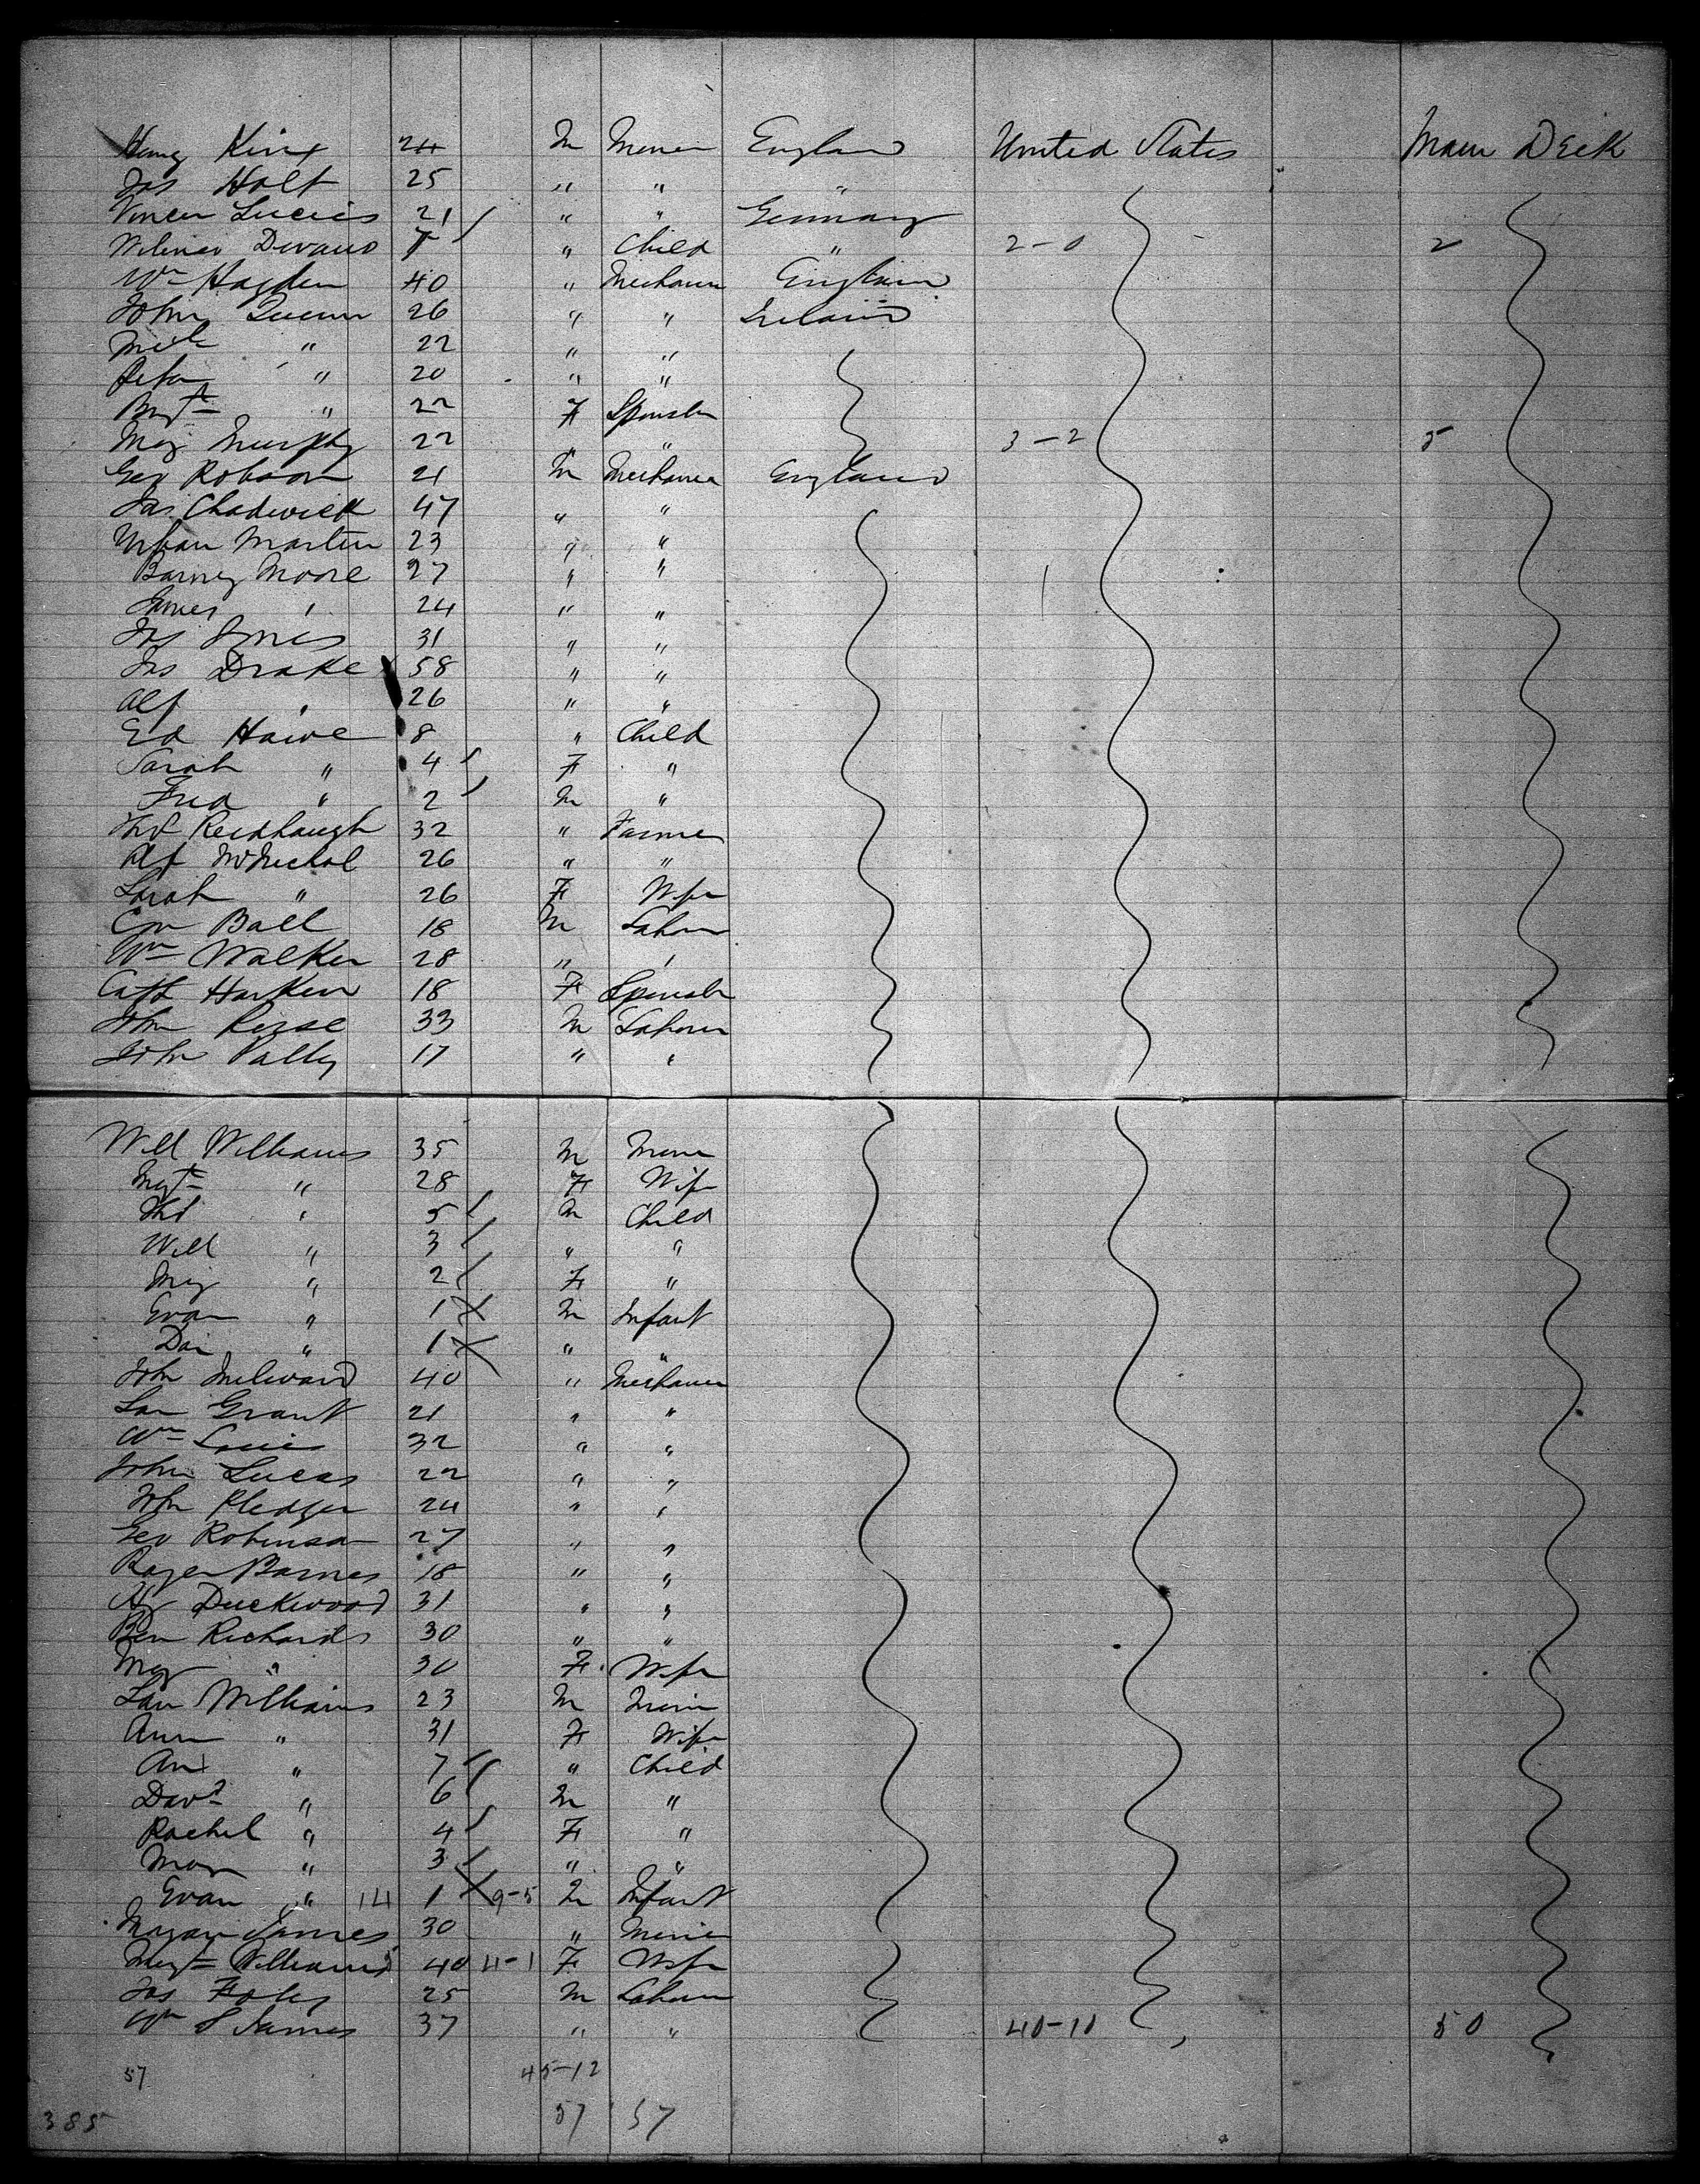 Henry King 24 M Miner England United States Main Deck
Jas Holt 25 " " "
Lucas 21 " " Germany
7 " Child " 2-0 2
Wm Hayden 40 " Mechanic England
John Quinn 26 " " Ireland
Mich " 22 " "
Peter " 20 " "
Bgt " 22 F Spinster
Mary Murphy 22 " " 3-2 5
Geo Robson 21 M Mechanic England
Jas Chadwick 47 " "
Urban Martin 23 " "
Barney Moore 27 " "
James " 24 " "
Jas Jones 31 " "
Jas Drake 58 " "
Alf " 26 " "
Ed Hawe 8 " Child
Sarah " 4 F "
Fred " 2 M "
Thos 32 " Farmer
McNichol 26 " "
Sarah " 26 F Wife
Ball 18 M Labour
Wm Walker 28 " "
Cath Harkin 18 F Spinster
John 33 M Labour
John 17 " "
Will Williams 35 M Miner
Mgt " 28 F Wife
Tho " 5 M Child
Will " 3 " "
My " 2 F "
Evan " 1 M Infant
Dai " 1 " "
John Milward 40 " Mechanic
Grant 21 " "
Wm 32 " "
John Lucas 22 " "
John Pledger 24 " "
Geo Robinson 27 " "
Roger Barnes 18 " "
Hy Duckwood 31 " "
Ben Richards 30 " "
My " 30 F Wife
Williams 23 M Miner
Ann " 31 F Wife
Ann " 7 " Child
Davd " 6 M "
Rachel " 4 F "
Mary " 3 " "
Evan " 14 1 9-5 M Infant
Morgan James 30 " Miner
Mgt Williams 40 4-1 F Wife
Jas Foley 25 M Labour
Wm S James 37 " " 40-10 50
57 45-12
385 57 57